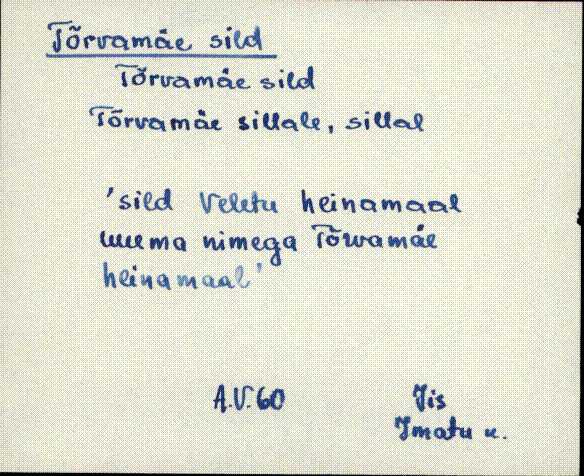 Tõrvamäe sild
Tõrvamäe sild
Tõrvamäe sillale, sillal
'sild Veletu heinamaal
uuema nimega Tõrvamäe
heinamaal'
A.V.60
Jis
Imatu k.